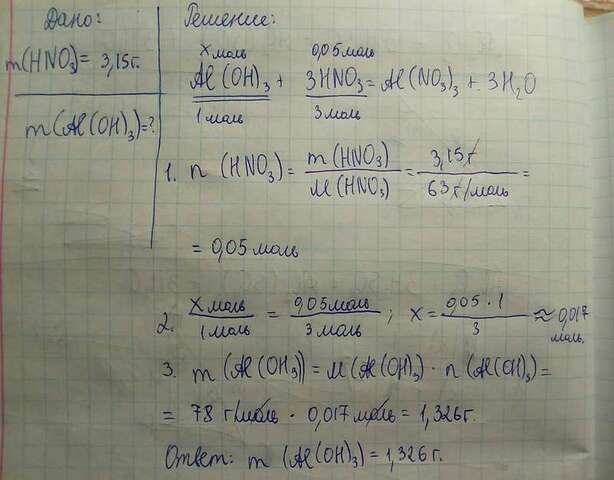 Дано:
m(HNO₃)= 3,15г.
m(Al(OH)₃)=?
Решение:
x моль 0,05 моль
Al(OH)₃ + 3HNO₃ = Al(NO₃)₃ + 3H₂O
1 моль 3 моль
1. n (HNO₃) = m(HNO₃)/M(HNO₃) = 3,15г/63г/моль =
= 0,05 моль
2. x моль/1 моль = 0,05 моль/3 моль ; x = 0,05 · 1/3 ≈ 0,017 моль.
3. m (Al(OH₃)) = M(Al(OH)₃) · n (Al(OH)₃) =
= 78 г/моль · 0,017 моль = 1,326г.
Ответ: m (Al(OH)₃) = 1,326г.